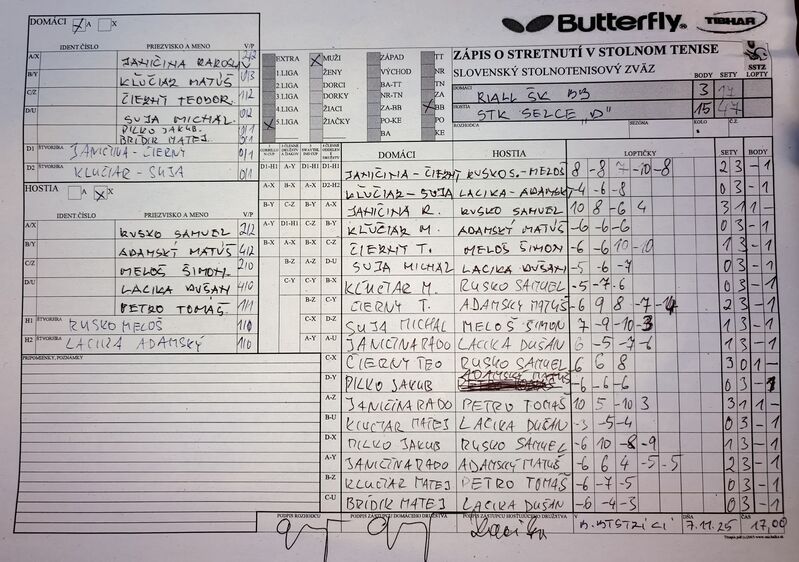 DOMÁCI A X
Butterfly TIBHAR
IDENT ČÍSLO PRIEZVISKO A MENO V/P
A/X JANIČINA RAROSLV 2/2
B/Y KĽUČIAR MATÚŠ 0/3
C/Z ČIERNY TEODOR. 1/2
D/U SUJA MICHAL 0/2
PILKO JAKUB. 0/1
BRÍDIK MATEJ 0/1
D1 ŠTVORHRA JANIČINA-ČIERNY 0/1
D2 ŠTVORHRA KLUČIAR - SUJA 0/1
HOSTIA A X
IDENT. ČÍSLO PRIEZVISKO A MENO V/P
A/X RUSKO SAMUEL 2/2
B/Y ADAMSKÝ MATÚŠ 4/0
C/Z MELOŠ ŠIMON. 2/0
D/U LACIKA DUŠAN 4/0
PETRO TOMÁŠ. 1/1
H1 ŠTVORHRA RUSKO MELOŠ 1/0
H2 ŠTVORHRA LACIKA ADAMSKÝ 1/0
PRIPOMIENKY, POZNÁMKY
EXTRA MUŽI ZÁPAD TT
1.LIGA ŽENY VÝCHOD NR
2.LIGA DORCI BA-TT TN
3.LIGA DORKY NR-TN ZA
4.LIGA ŽIACI ZA-BB BB
5.LIGA ŽIAČKY PO-KE PO
BA KE
ZÁPIS O STRETNUTÍ V STOLNOM TENISE
SLOVENSKÝ STOLNOTENISOVÝ ZVÄZ
SSTZ
BODY SETY LOPTY
DOMÁCI RIALL ŠK BB 3 17
HOSTIA STK SELCE "D" 15 47
ROZHODCA SEZÓNA KOLO Č.Z.
DOMÁCI HOSTIA LOPTIČKY SETY BODY
D1-H1 JANIČINA - ČIERNI RUSKO S.-MELOŠ 8 -8 7 -10 -8 2 3 -1
D2-H2 KĽUČIAR-SUJA LACIKA-ADAMSKÝ -4 -6 -8 0 3 -1
A-X JANIČINA R. RUSKO SAMUEL 10 8 -6 4 3 1 1 -
B-Y KĽUČIAR M. ADAMSKÝ MATÚŠ -6 -6 -6 0 3 -1
C-Z ČIERNY T. MELOŠ ŠIMON -6 -6 10 -10 1 3 -1
D-U SUJA MICHAL LACIKA DUŠAN -5 -6 -7 0 3 -1
B-X KĽUČIAR M. RUSKO SAMUEL -5 -7 -6 0 3 -1
C-Y ČIERNY T. ADAMSKÝ MATÚŠ -6 9 8 -7 -14 2 3 -1
D-Z SUJA MICHAL MELOŠ ŠIMON 7 -9 -10 -3 1 3 -1
A-U JANIČINA RADO LACIKA DUŠAN 6 -5 -7 -6 1 3 -1
C-X ČIERNY TEO RUSKO SAMUEL 6 6 8 3 0 1 -
D-Y PILKO JAKUB ADAMSKÝ MATÚŠ -6 -6 -6 0 3 - 1
A-Z JANIČINA RADO PETRO TOMÁŠ 10 5 -10 3 3 1 1 -
B-U KLUČIAR MATEJ LACIKA DUŠAN -3 -5 -4 0 3 -1
D-X PILKO JAKUB RUSKO SAMUEL -6 10 -8 -9 1 3 -1
A-Y JANIČINA RADO ADAMSKÝ MATUŠ -6 6 4 -5 -5 2 3 -1
B-Z KLUČIAR MATEJ PETRO TOMÁŠ -6 -7 -5 0 3 -1
C-U BRÍDIK MATEJ LACIKA DUŠAN -6 -4 -3 0 3 -1
PODPIS ROZHODCU PODPIS ZÁSTUPCU DOMÁCEHO DRUŽSTVA PODPIS ZÁSTUPCU HOSŤUJÚCEHO DRUŽSTVA V B. BYSTRICI DŇA 7.11.25 ČAS 17,00